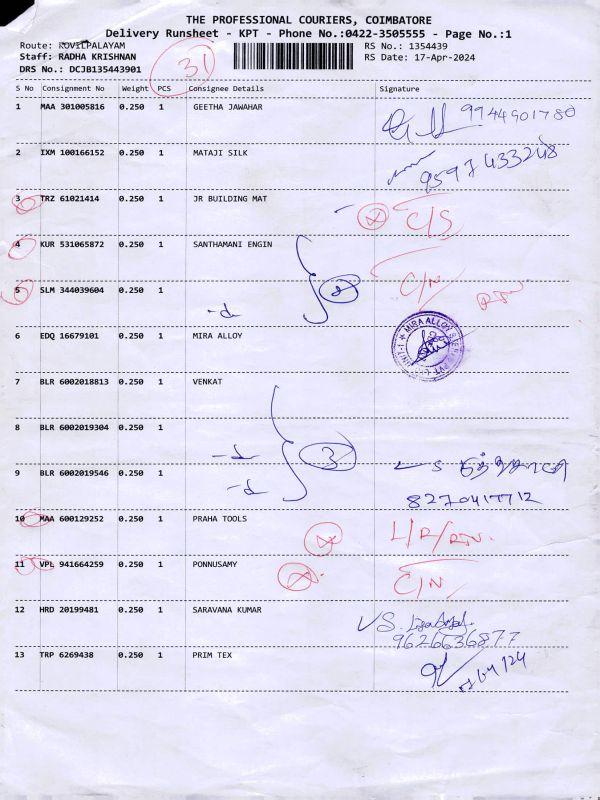 THE PROFESSIONAL COURIERS, COIMBATORE
Delivery Runsheet - KPT - Phone No.:0422-3505555 - Page No.:1
Route: KOVILPALAYAM
RS No.: 1354439
Staff: RADHA KRISHNAN
RS Date: 17-Apr-2024
DRS No.: DCJB135443901
31
S No Consignment No Weight PCS Consignee Details Signature
1 MAA 301005816 0.250 1 GEETHA JAWAHAR 9944901780
2 IXM 100166152 0.250 1 MATAJI SILK 9597433248
3 TRZ 61021414 0.250 1 JR BUILDING MAT C/S
4 KUR 531065872 0.250 1 SANTHAMANI ENGIN
5 SLM 344039604 0.250 1 -d- 2 C/N
6 EDQ 16679101 0.250 1 MIRA ALLOY MIRA ALLOY
7 BLR 6002018813 0.250 1 VENKAT
8 BLR 6002019304 0.250 1 -d- 3
9 BLR 6002019546 0.250 1 -d-
8270417712
10 MAA 600129252 0.250 1 PRAHA TOOLS L/R/RN.
11 VPL 941664259 0.250 1 PONNUSAMY C/N
12 HRD 20199481 0.250 1 SARAVANA KUMAR
9626636877
13 TRP 6269438 0.250 1 PRIM TEX